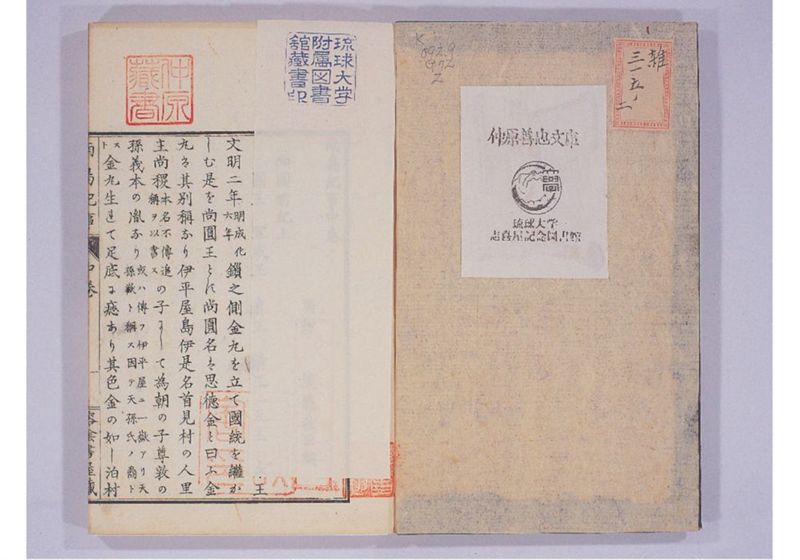 K
092.9
G72
Z
雑
三ノ五ノ二
仲原善忠文庫
琉球大学
志喜屋記念図書館
琉球大学
附属図書
館蔵書印
仲原
藏書
王
文明二年明成化六年鎖之側金丸を立て國統を繼か
しむ是を尚圓王とす尚圓名は思德金と曰ふ金
丸は其別稱なり伊平屋島伊是名首見村の人里
主尚稷本名不傳追稱ヲ以書スの子にして為朝の子尊敦の
孫義本の胤なり或ハ傳フ伊平屋ニ一嶽アリ天孫嶽ト稱ス因テ天孫氏ノ裔ト
ス金丸生れて足底に痣あり其色金の如し泊村